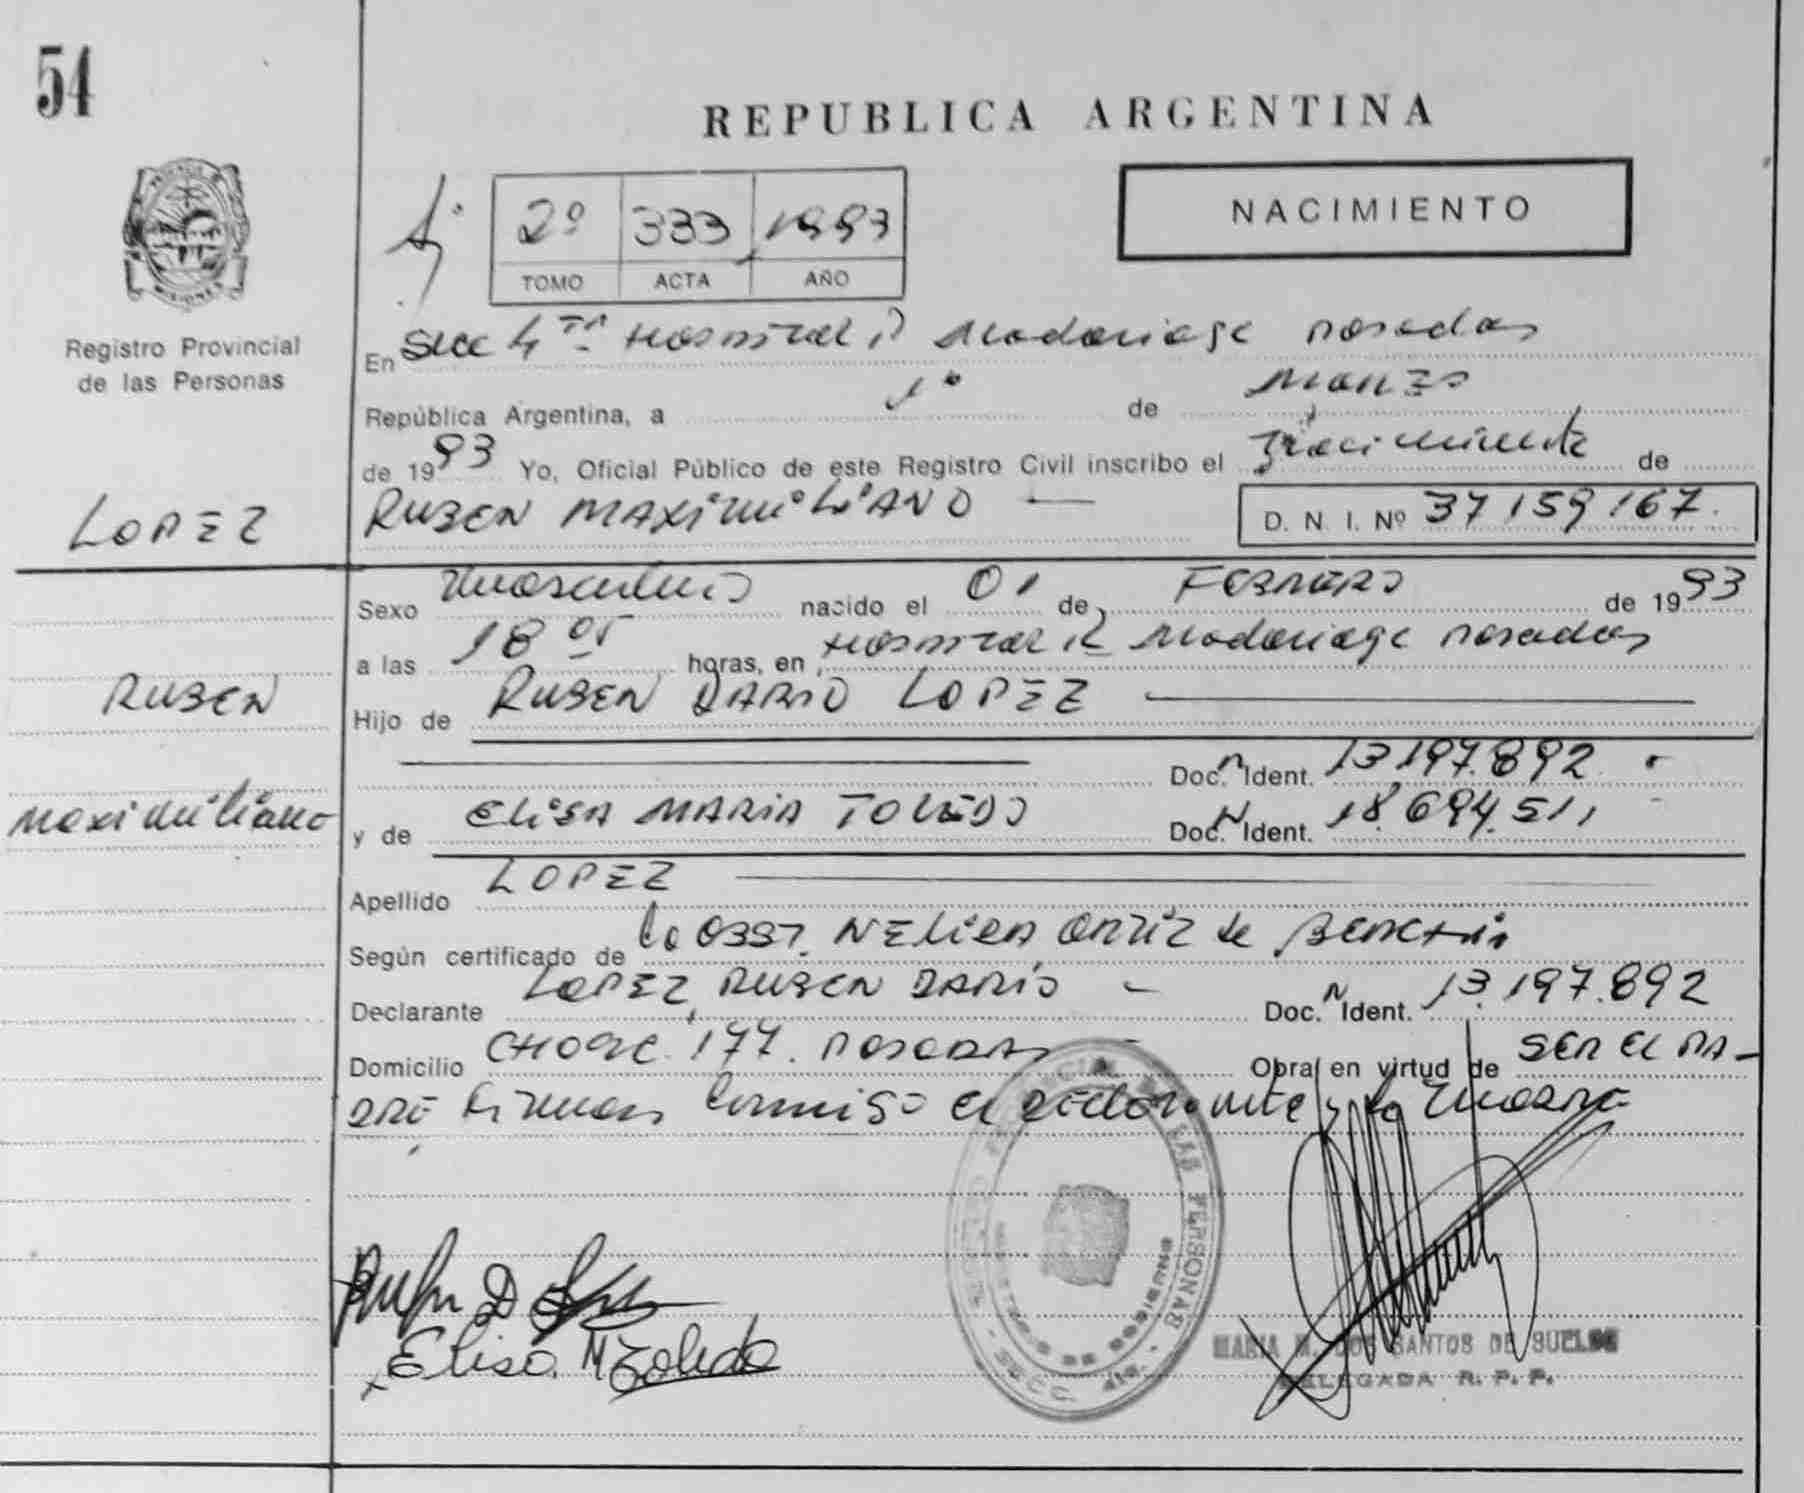 54
REPUBLICA ARGENTINA
2º 333 1993
TOMO ACTA AÑO
NACIMIENTO
PROVINCIA DE MISIONES
Registro Provincial
de las Personas
En Secc 4ta Hospital R Madariaga Posadas
República Argentina, a 1º de Marzo
de 1993 Yo, Oficial Público de este Registro Civil inscribo el Nacimiento de
LOPEZ
RUBEN MAXIMILIANO D. N. I. Nº 37159167.
Sexo Masculino nacido el 01 de FEBRERO de 1993
a las 18 05 horas, en Hospital R Madariaga Posadas
RUBEN
Hijo de RUBEN DARIO LOPEZ
Doc. N Ident. 13.197.892
Maximiliano
y de ELISA MARIA TOLEDO Doc. N Ident. 18.694.511
Apellido LOPEZ
Según certificado de la OBST. NELIDA ORTIZ de
Declarante LOPEZ, RUBEN DARIO Doc. N Ident. 13.197.892
Domicilio 177. POSADAS Obra en virtud de SER EL PA-
DRE Firman conmigo el declarante y la madre
REGISTRO PROVINCIAL DE LAS PERSONAS
MISIONES
Elisa M Toledo
MARIA M. DOS SANTOS DE BUELOS
DELEGADA R. P. P.